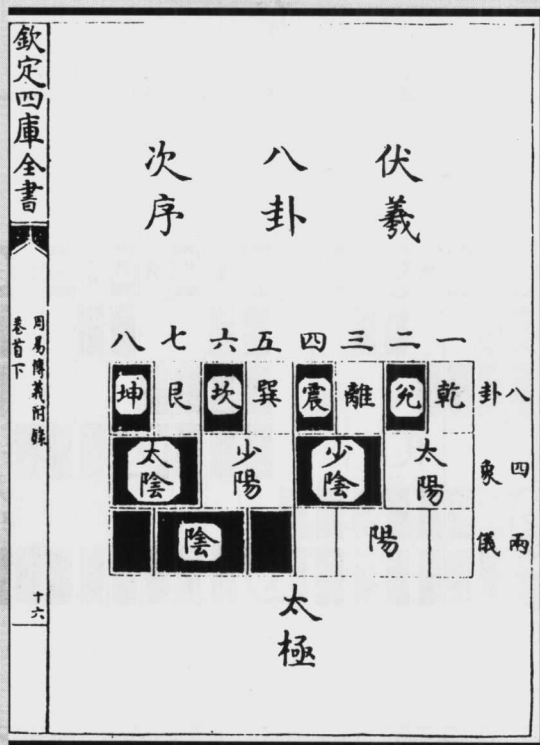 欽定四庫全書
周易傳義附錄
卷首下
十六
伏羲
八卦
次序
一 二 三 四 五 六 七 八
八卦
乾 兌 離 震 巽 坎 艮 坤
四象
太陽 少陰 少陽 太陰
兩儀
陽 陰
太極